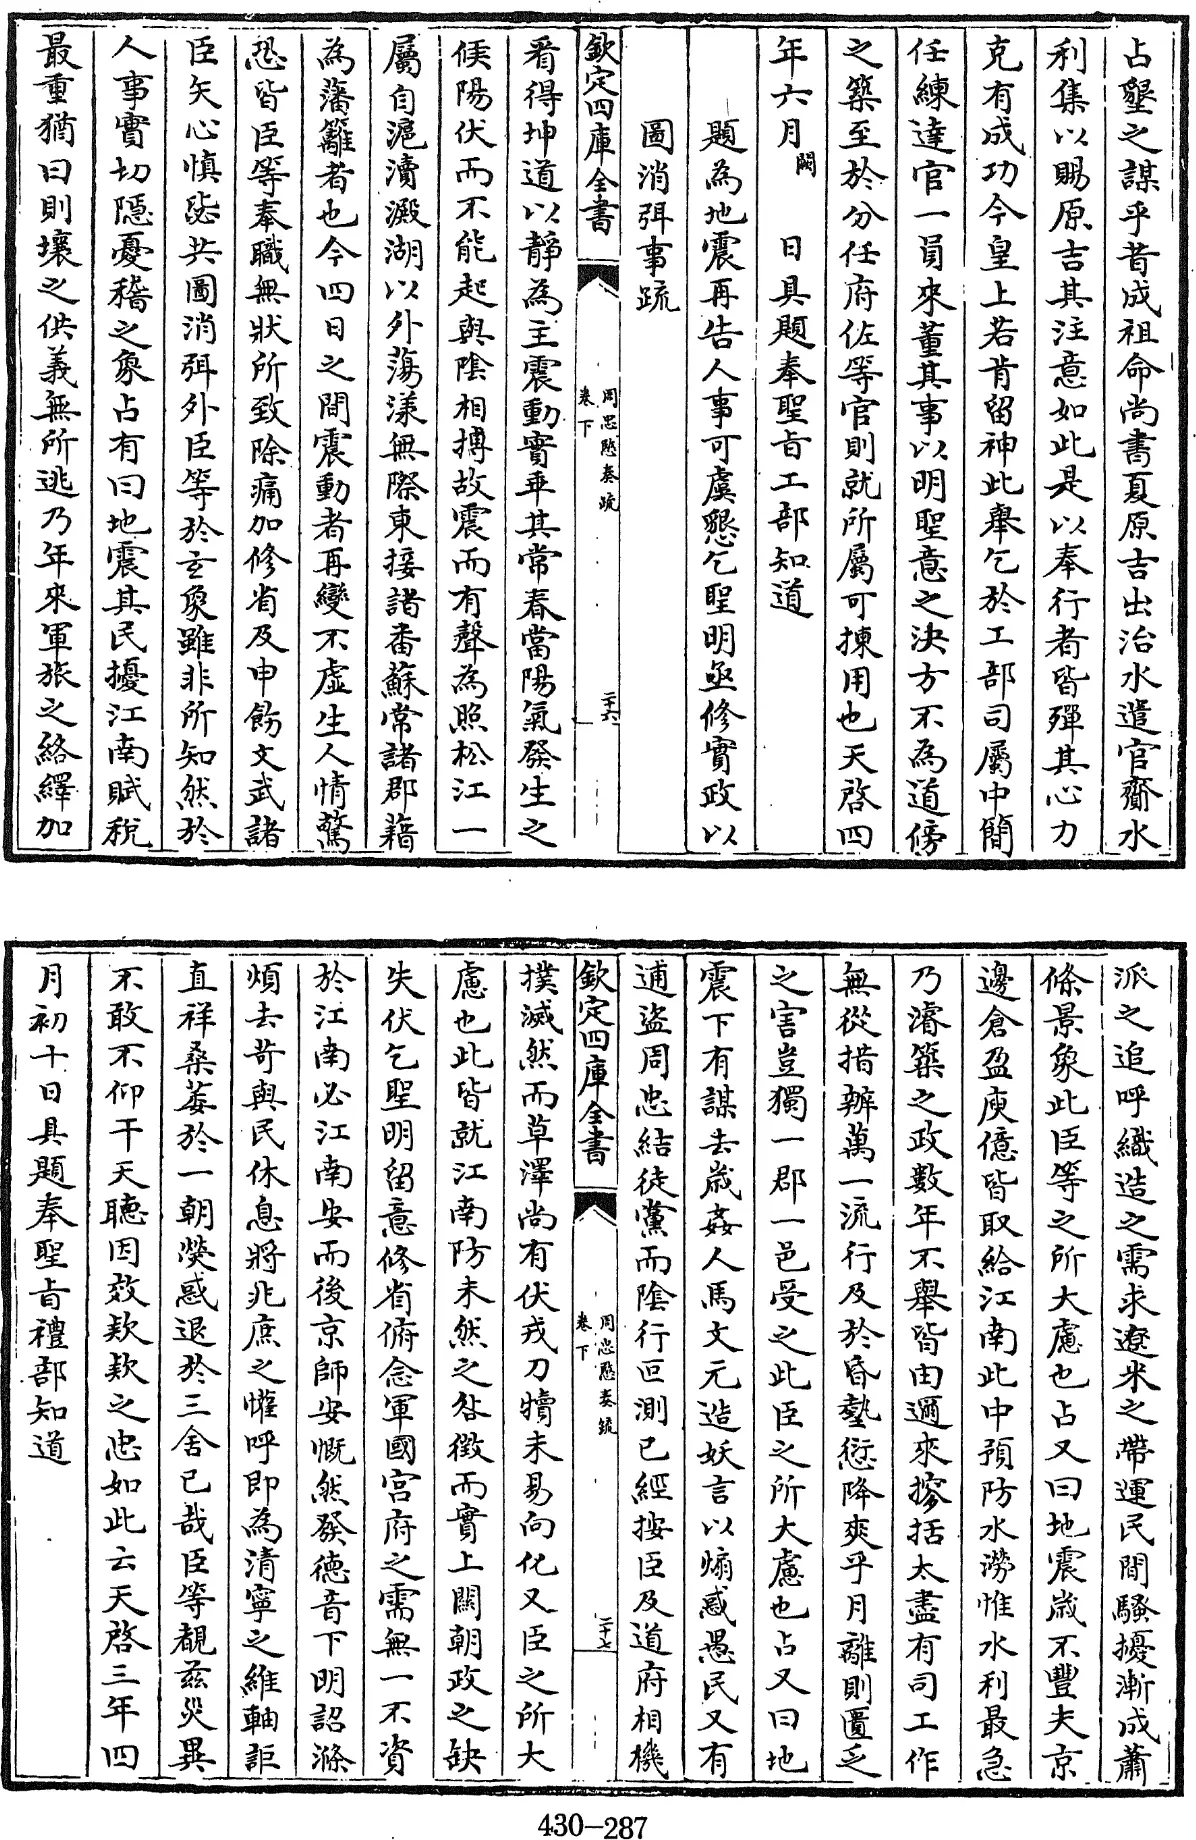 占墾之謀乎昔成祖命尚書夏原吉出治水遣官齎水
利集以賜原吉其注意如此是以奉行者皆殫其心力
克有成功今皇上若肯留神此舉乞於工部司屬中簡
任練達官一員來董其事以明聖意之決方不為道傍
之築至於分任府佐等官則就所屬可揀用也天啓四
年六月闕　日具題奉聖旨工部知道
題為地震再告人事可虞懇乞聖明亟修實政以
圖消弭事疏
欽定四庫全書　周忠愍奏疏 卷下　二十六
看得坤道以靜為主震動實乖其常春當陽氣發生之
候陽伏而不能起與陰相搏故震而有聲為照松江一
屬自滬瀆澱湖以外蕩漾無際東接諸番蘇常諸郡藉
為藩籬者也今四日之間震動者再變不虛生人情驚
恐皆臣等奉職無狀所致除痛加修省及申飭文武諸
臣矢心慎毖共圖消弭外臣等於玄象雖非所知然於
人事實切隱憂稽之象占有曰地震其民擾江南賦稅
最重猶曰則壤之供義無所逃乃年來軍旅之絡繹加
派之追呼織造之需求遼米之帶運民間騷擾漸成蕭
條景象此臣等之所大慮也占又曰地震歲不豐夫京
邊倉盈庾億皆取給江南此中預防水澇惟水利最急
乃濬築之政數年不舉皆由邇來搜括太盡有司工作
無從措辦萬一流行及於昏墊愆降爽乎月離則匱乏
之害豈獨一郡一邑受之此臣之所大慮也占又曰地
震下有謀去歲姦人馬文元造妖言以煽惑愚民又有
逋盜周忠結徒黨而陰行叵測已經按臣及道府相機
欽定四庫全書　周忠愍奏疏 卷下　二十七
撲滅然而草澤尚有伏戎刀犢未易向化又臣之所大
慮也此皆就江南防未然之咎徵而實上關朝政之缺
失伏乞聖明留意修省俯念軍國宮府之需無一不資
於江南必江南安而後京師安慨然發德音下明詔滌
煩去苛與民休息將兆庶之懽呼即為清寧之維軸詎
直祥桑萎於一朝熒惑退於三舍已哉臣等覩茲災異
不敢不仰干天聽因效款款之忠如此云天啓三年四
月初十日具題奉聖旨禮部知道
430-287